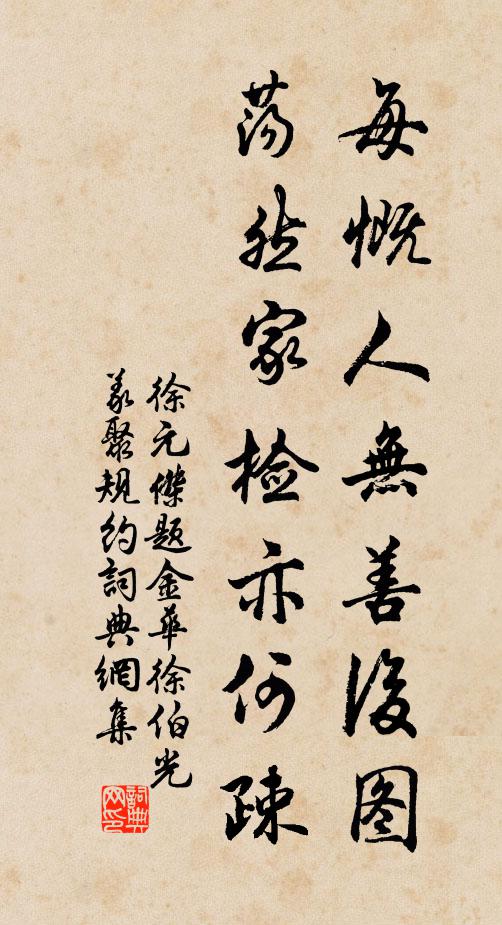 每慨人無善後图
荡然家檢亦何疎
徐元傑題金華徐伯光
義聚規約詞典網集
詞典网印